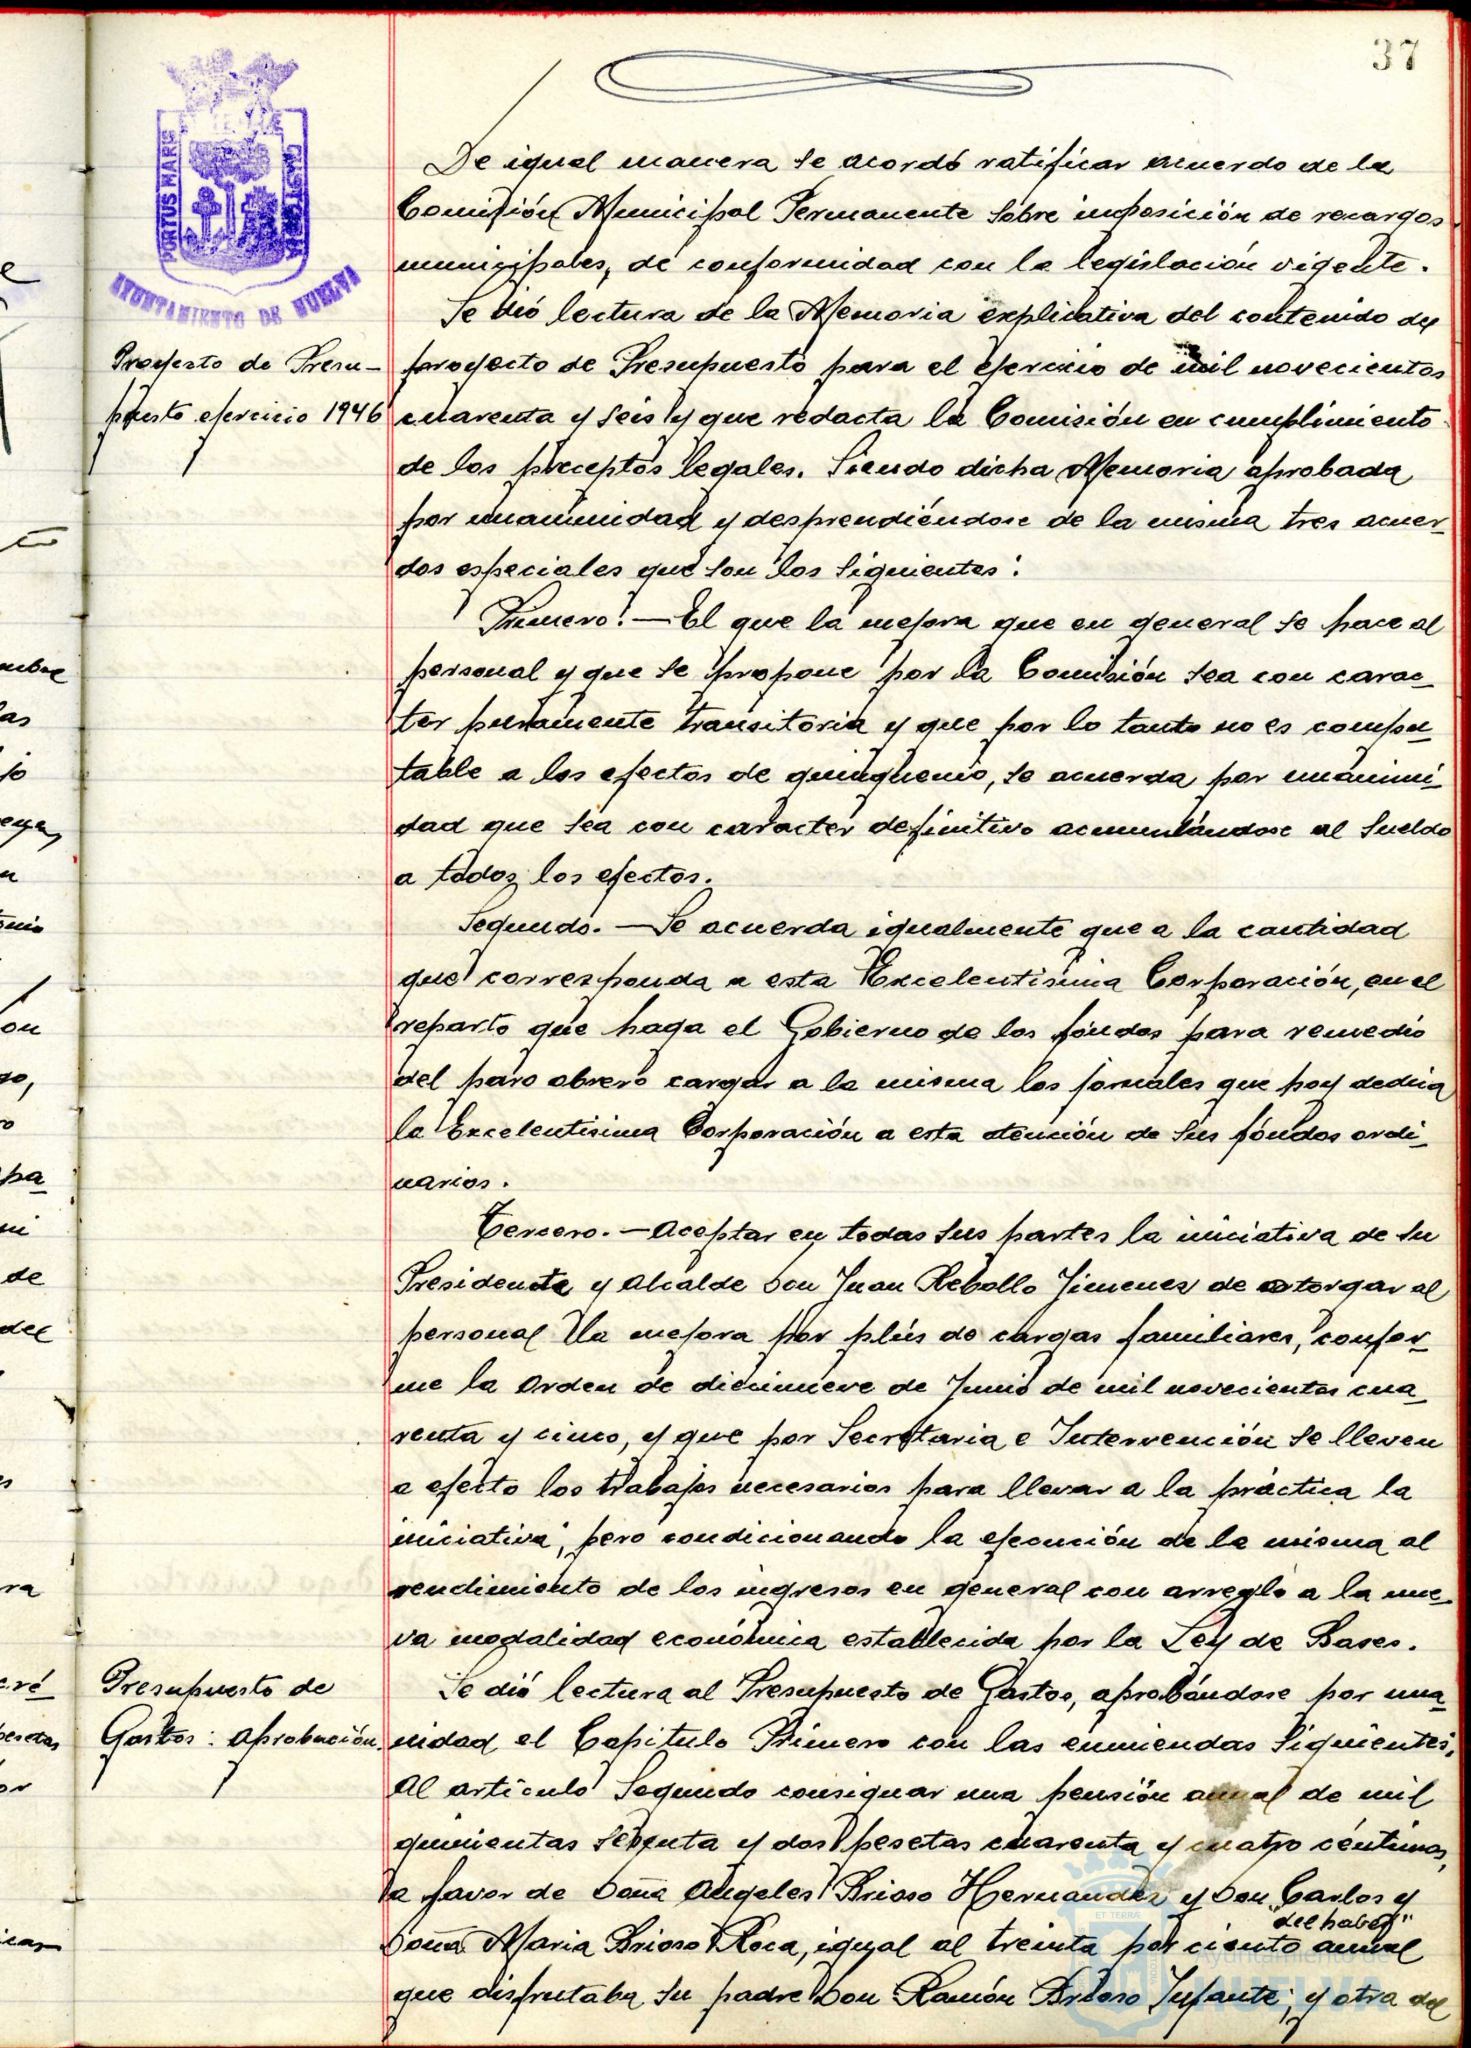 37
PORTUS MARIS
AYUNTAMIENTO DE HUELVA
De igual manera se acordó ratificar acuerdo de la
Comisión Municipal Permanente sobre imposición de recargos
municipales, de conformidad con la legislación vigente.
Se dió lectura de la Memoria explicativa del contenido del
Proyecto de Presu-
puesto ejercicio 1946
proyecto de Presupuesto para el ejercicio de mil novecientos
cuarenta y seis y que redacta la Comisión en cumplimiento
de los preceptos legales. Siendo dicha Memoria aprobada
por unanimidad y desprendiéndose de la misma tres acuer-
dos especiales que son los siguientes:
Primero.—El que la mejora que en general se hace al
personal y que se propone por la Comisión sea con carac-
ter puramente transitoria y que por lo tanto no es compu-
table a los efectos de quinquenio, se acuerda por unanimi-
dad que sea con caracter definitivo acumulándose al sueldo
a todos los efectos.
Segundo.—Se acuerda igualmente que a la cantidad
que corresponda a esta Excelentisima Corporación, en el
reparto que haga el Gobierno de los fóndos para remedio
del paro obrero cargar a la misma los jornales que hoy dedica
la Excelentisima Corporación a esta atención de sus fóndos ordi-
narios.
Tercero.—Aceptar en todas sus partes la iniciativa de su
Presidente y Alcalde Don Juan Rebollo Jimenez de otorgar al
personal la mejora por plús de cargas familiares, confor-
me la Orden de diecinueve de Junio de mil novecientos cua-
renta y cinco, y que por Secretaria e Intervención se lleven
a efecto los trabajos necesarios para llevar a la práctica la
iniciativa, pero condicionando la ejecución de la misma al
rendimiento de los ingresos en general con arreglo a la nue-
va modalidad económica establecida por la Ley de Bases.
Presupuesto de
Gastos: aprobación.
Se dió lectura al Presupuesto de Gastos, aprobándose por una-
nidad el Capitulo Primero con las enmiendas siguientes:
Al articulo Segundo consignar una pensión anual de mil
quinientas sesenta y dos pesetas cuarenta y cuatro céntimos,
a favor de Doña Angeles Brioso Hernandez y Don Carlos y
"del haber"
Doña Maria Brioso Roca, igual al treinta por ciento anual
que disfrutaba su padre Don Ramón Brioso Infante; y otra del
Ayuntamiento de
HUELVA